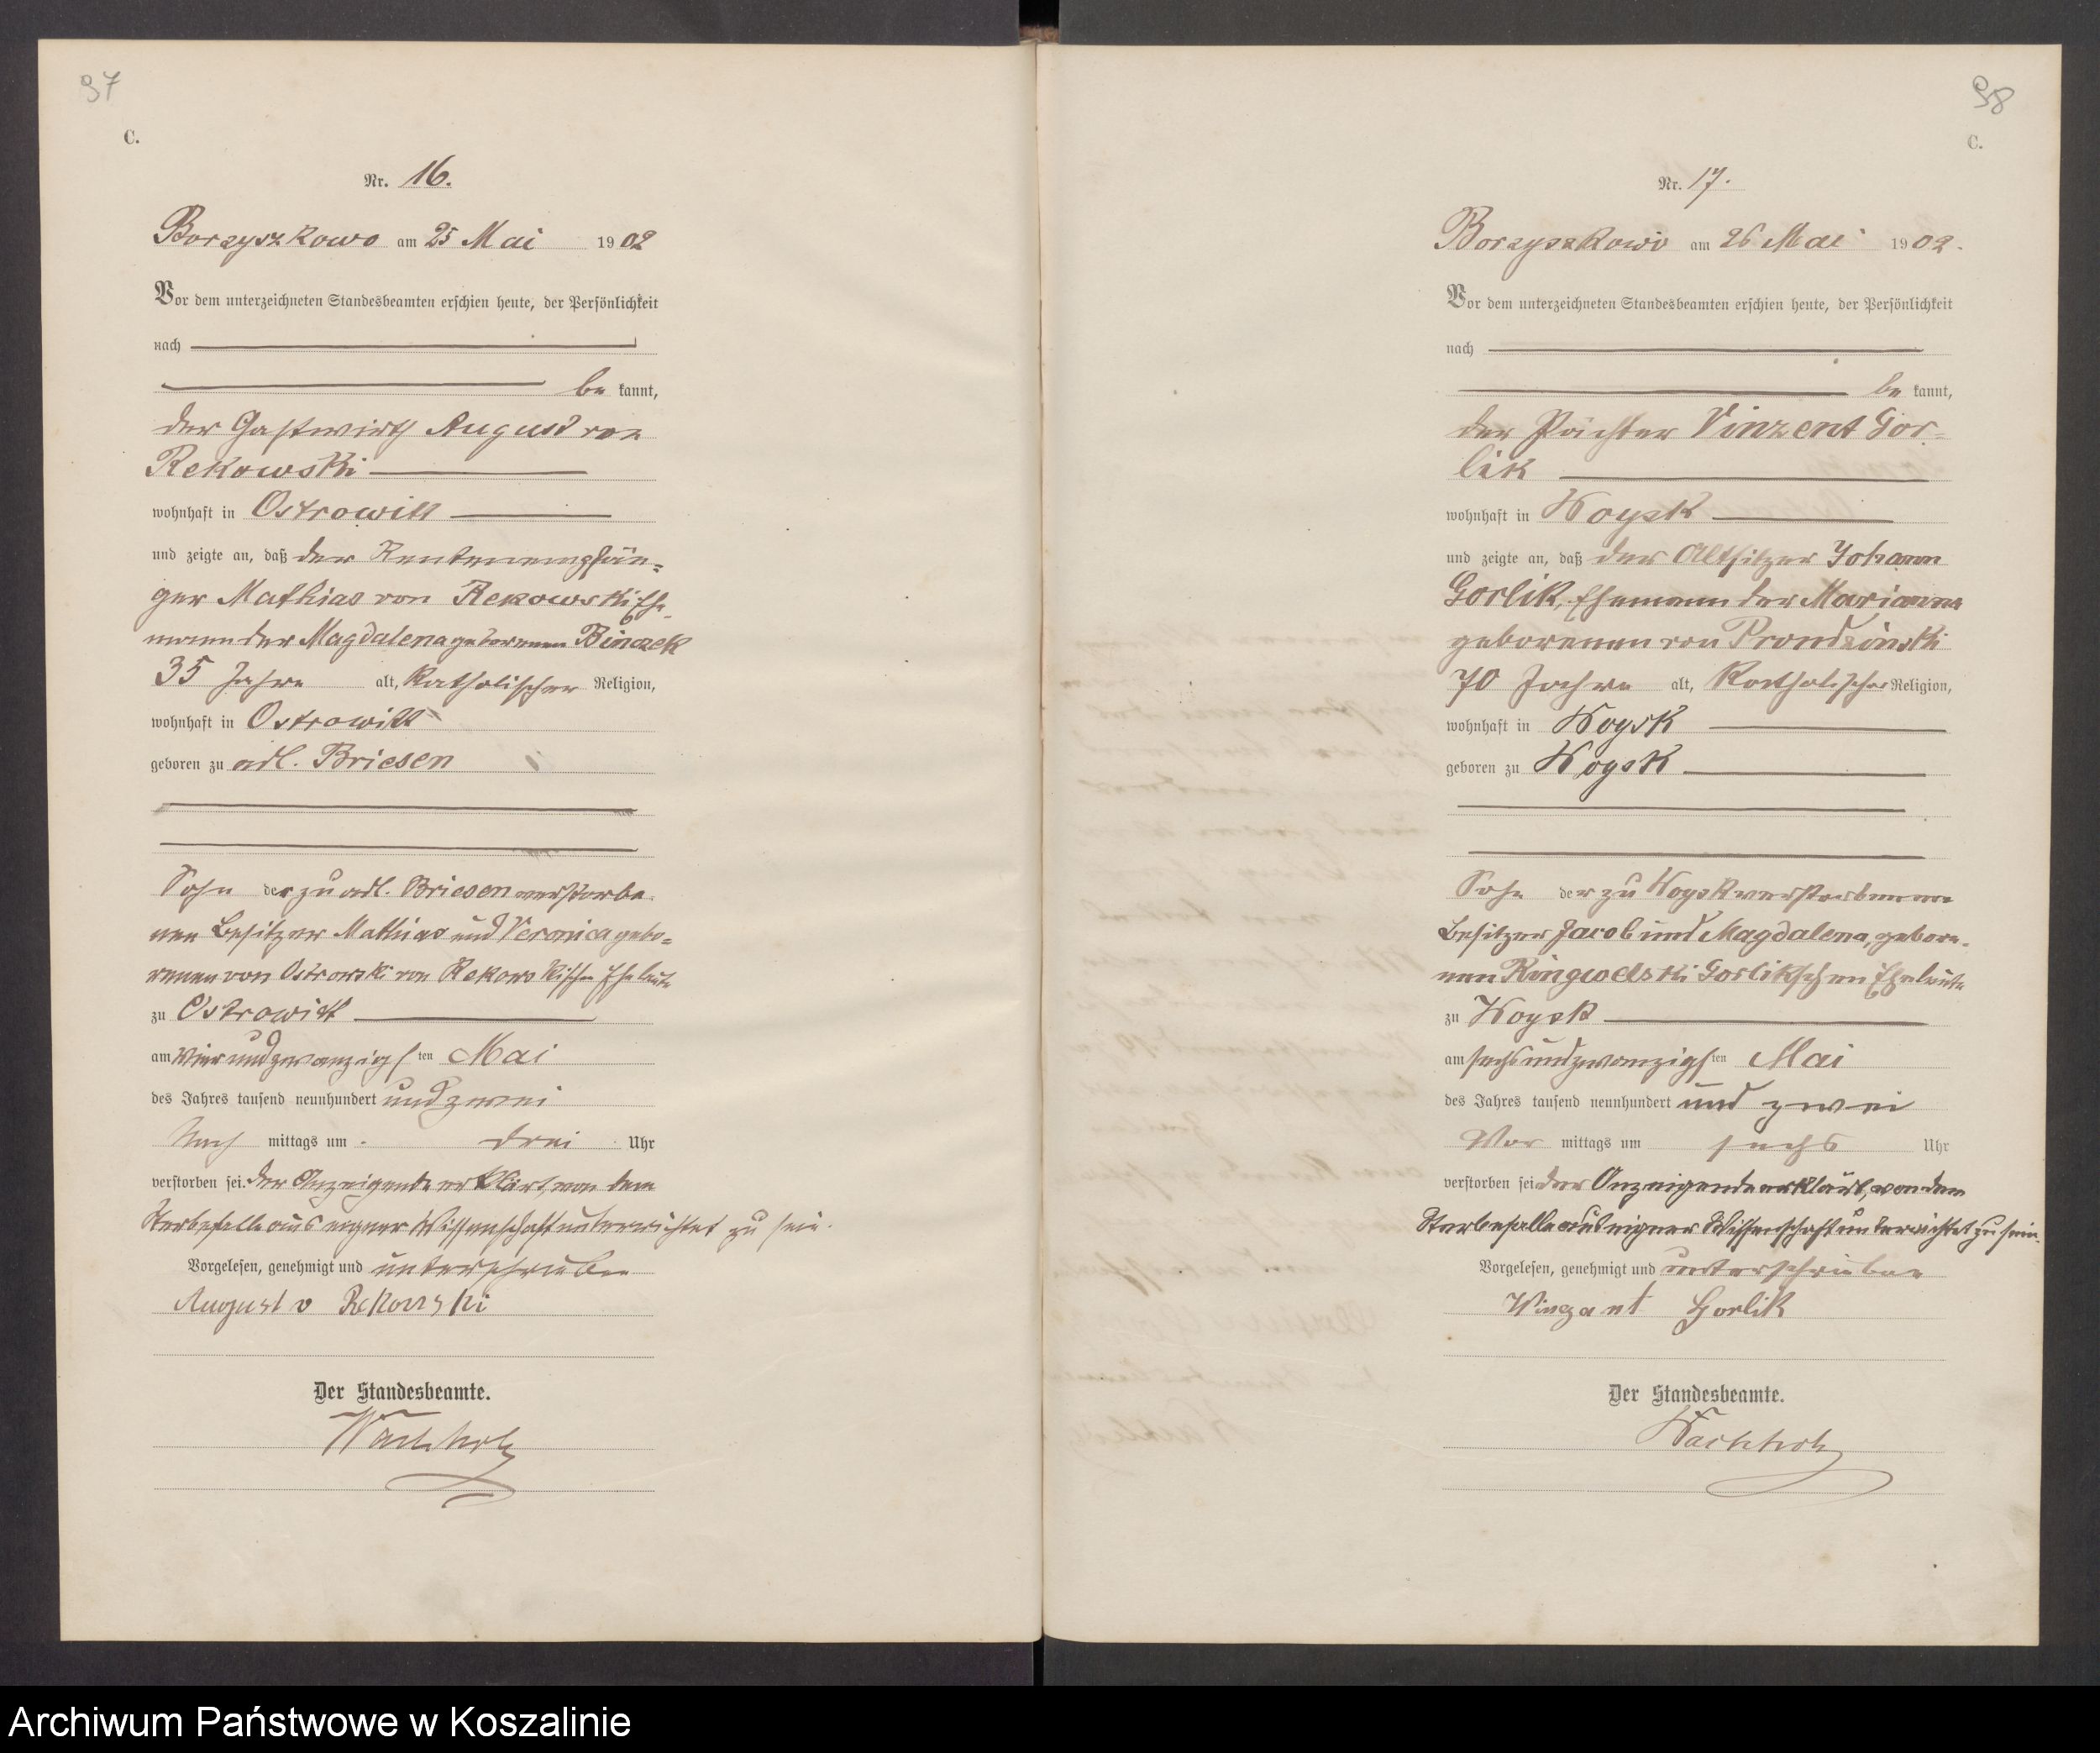 37
C.
Nr. 16.
Borzyszkowo am 25 Mai 1902
Vor dem unterzeichneten Standesbeamten erschien heute, der Persönlichkeit
nach
be kannt,
der Gastwirth August von
Rekowski
wohnhaft in Ostrowitt
und zeigte an, daß der Rentenempfän-
ger Mathias von Rekowski Ehe-
mann der Magdalena geborenen Binczek
35 Jahre alt, katholischer Religion,
wohnhaft in Ostrowitt
geboren zu adl. Briesen
Sohn der zu adl. Briesen verstorbe-
nen Besitzer Mathias und Veronica gebo-
renen von Ostrowski von Rekowskischen Eheleute
zu Ostrowitt
am vierundzwanzigsten Mai
des Jahres tausend neunhundert und zwei
Nach mittags um drei Uhr
verstorben sei. Der Anzeigende erklärt, von dem
Sterbefalle aus eigner Wissenschaft unterrichtet zu sein.
Vorgelesen, genehmigt und unterschrieben
August v Rekowski
Der Standesbeamte.
Wachholz
38
C.
Nr. 17.
Borzyszkowo am 26 Mai 1902.
Vor dem unterzeichneten Standesbeamten erschien heute, der Persönlichkeit
nach
be kannt,
der Pächter Vinzent Gor-
lik
wohnhaft in Woysk
und zeigte an, daß der Altsitzer Johann
Gorlik, Ehemann der Marianna
geborenen von Prondzinski
70 Jahre alt, katholischer Religion,
wohnhaft in Woysk
geboren zu Woysk
Sohn der zu Woysk verstorbenen
Besitzer Jacob und Magdalena, gebore-
nen Ringwelski Gorlikschen Eheleute
zu Woysk
am sechsundzwanzigsten Mai
des Jahres tausend neunhundert und zwei
Vor mittags um sechs Uhr
verstorben sei der Anzeigende erklärt, von dem
Sterbefalle aus eigner Wissenschaft unterrichtet zu sein.
Vorgelesen, genehmigt und unterschrieben
Vinzant Gorlik
Der Standesbeamte.
Wachholz
Archiwum Państwowe w Koszalinie